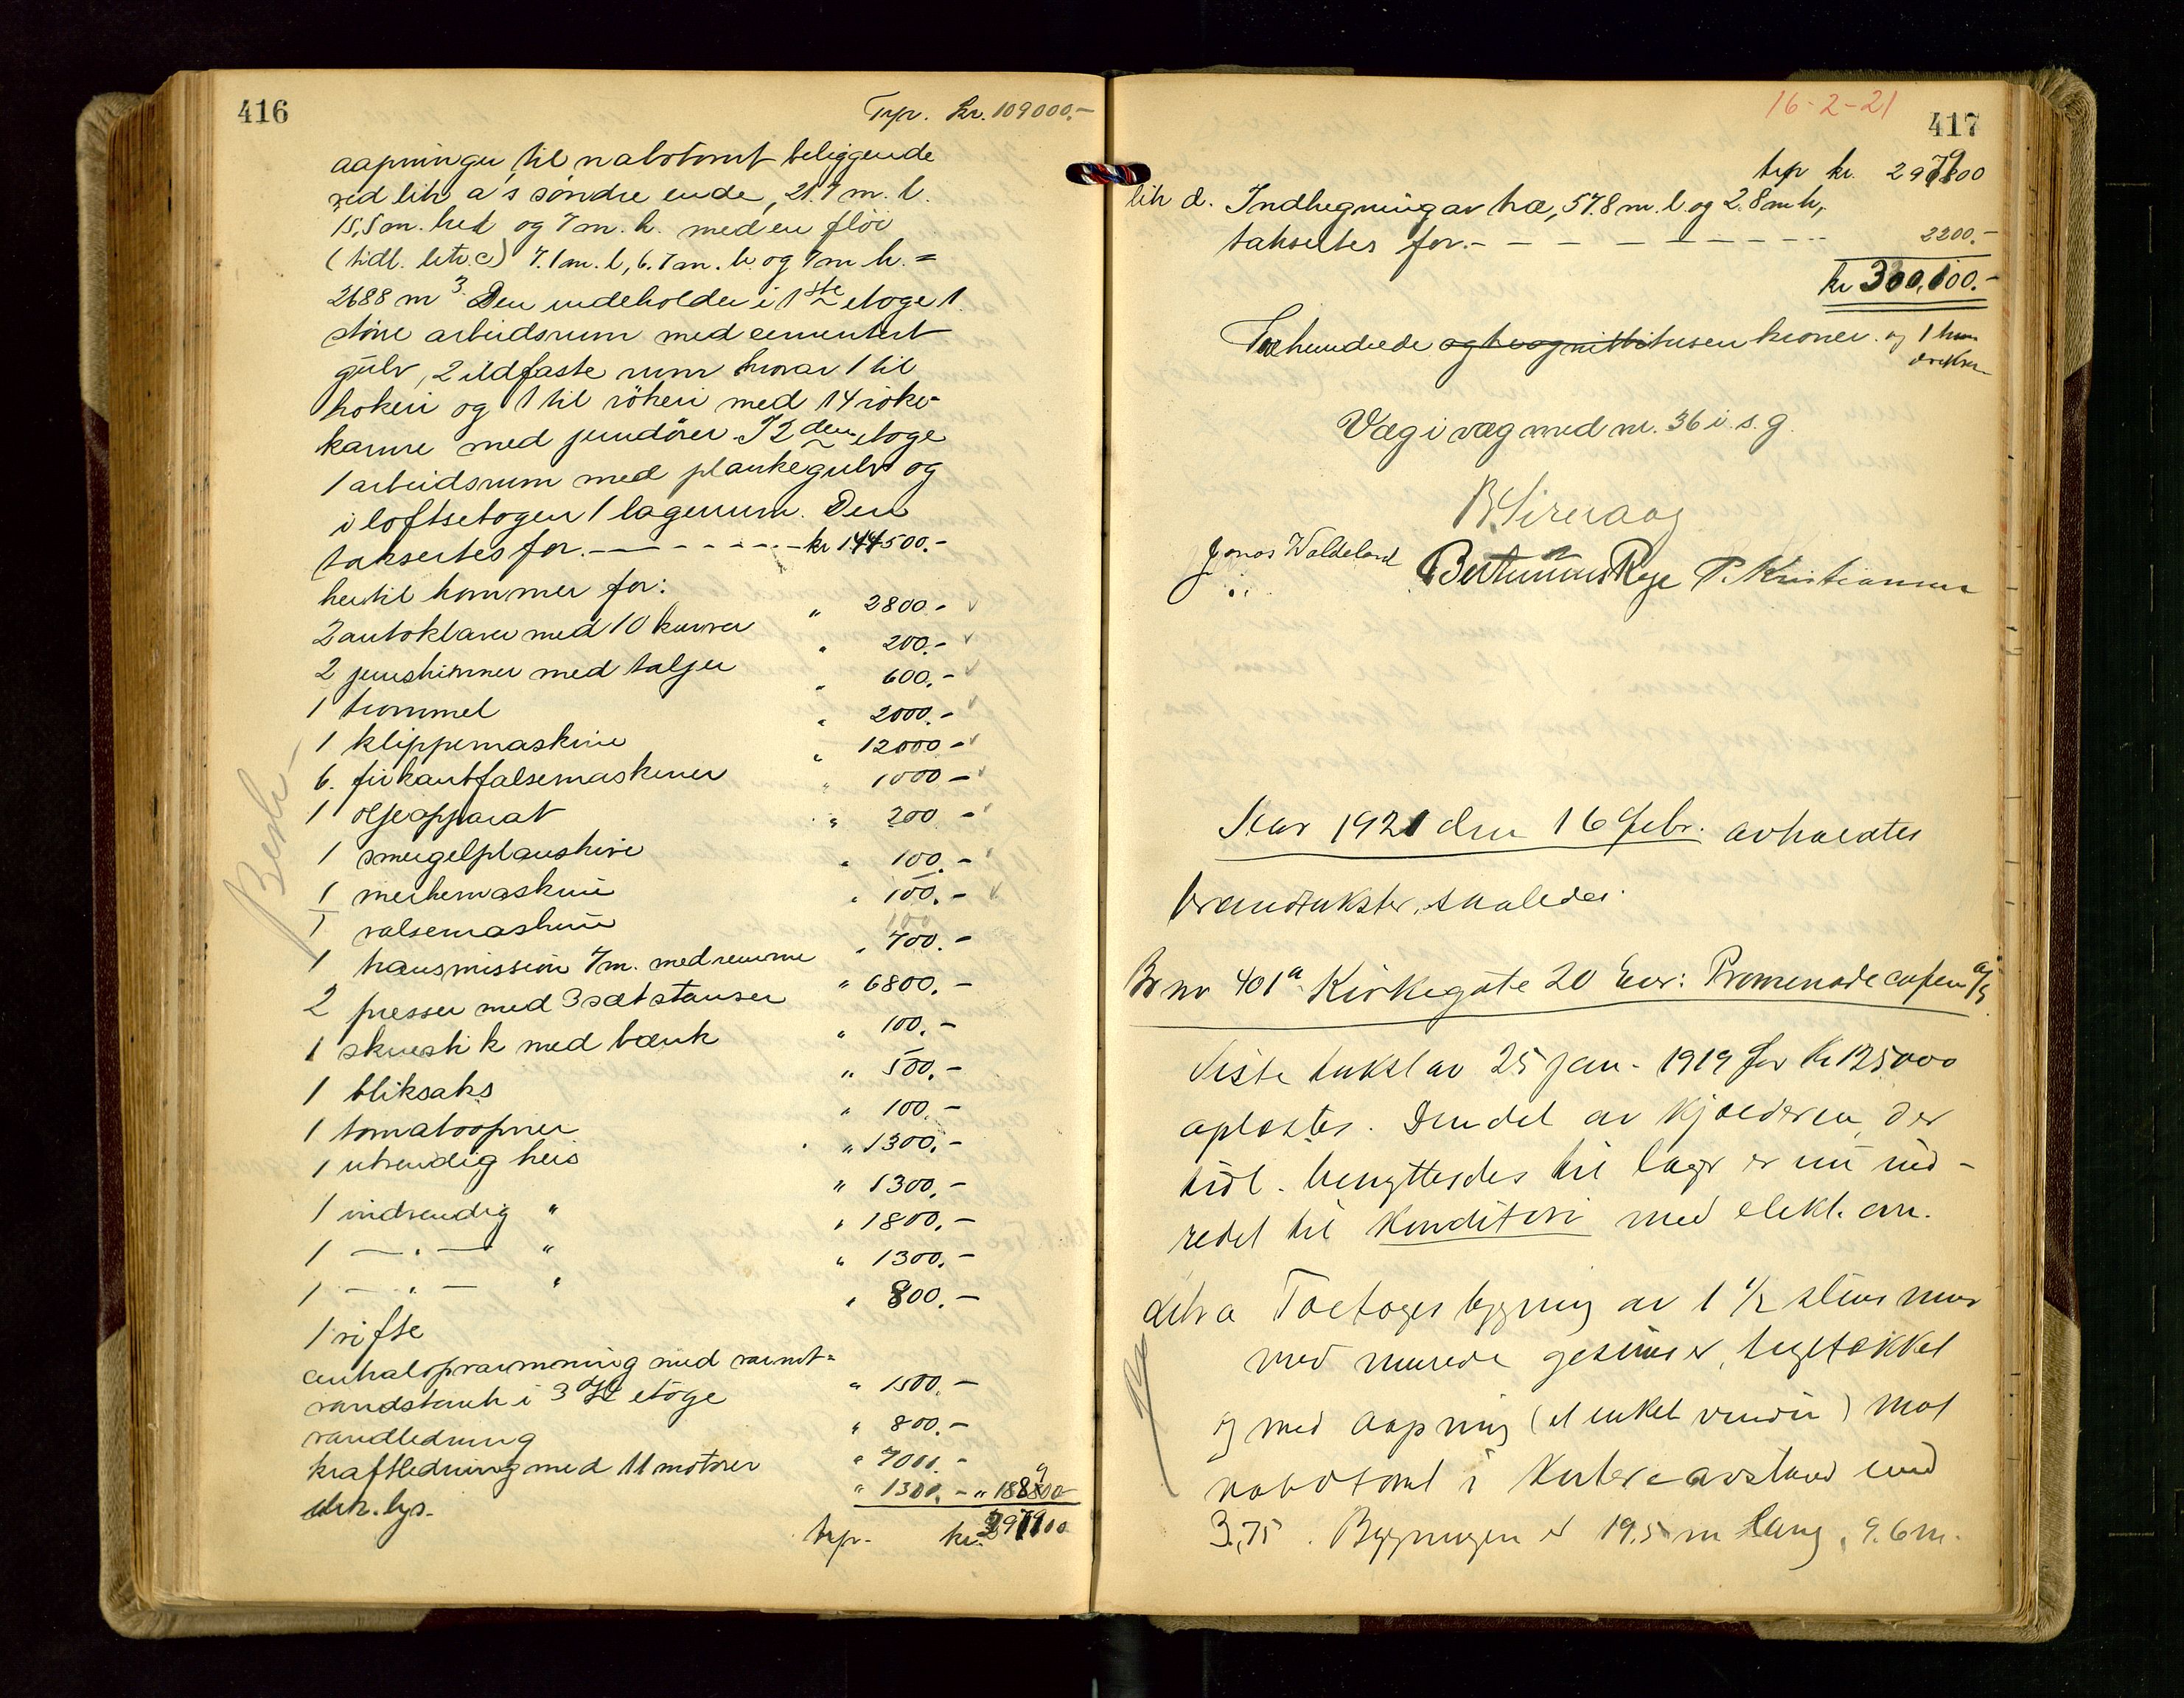 416
Trp. kr. 109000.-
aapninger til nabotomt beliggende
ved litr a's søndre ende, 21.7 m. l.
15,5 m. bred og 7 m. h. med en fløi
(tidl. litr. c) 7.1 m. l, 6.7 m. b. og 7 m h. =
2688 m³. Den indeholder i 1ste etage 1
større arbeidsrum med cementert
gulv, 2 ildfaste rum hvorav 1 til
kokeri og 1 til røkeri med 14 røke-
kamre med jerndører. I 2den etage
1 arbeidsrum med plankegulv og
i loftsetagen 1 lagerrum. Den
taksertes for. - - - - - - - kr 144500.-
hertil kommer for:
2 autoklaver med 10 kurver " 2800.-
2 jernskinner med taljer " 200.-
1 trommel " 600.-
1 klippemaskine " 2000.-
6. firkantfalsemaskiner " 12000 -
1 oljeapparat " 1000 -
1 smergelplanskive " 200 -
1 merkemaskine " 100.-
1 valsemaskine " 100.-
1 transmission 7 m. med remme " 700.-
2 presser med 3 sæt stanser " 6800.-
1 skruestik med bænk " 100.-
1 bliksaks " 500.-
1 tomatoopner " 100.-
1 utvendig heis " 1300.-
1 indvendig " " 1300.-
1 - " - " " 1800.-
1 - " - " " 1300.-
1 vifte " 800.-
centralopvarmning med varmt-
vandstank i 3die etage " 1500.-
vandledning " 800.-
kraftledning med 11 motorer " 7000.-
elek. lys. " 1300.- "
trp. kr.
16-2-21
417
trp kr. 297900
litr d. Indhegning av træ, 57.8 m. l. og 2.8 m h,
taksertes for. - - - - - - - - - 2200.-
kr 300,100.-
Trehundrede og to og nitti tusen kroner. og 1 hun
Væg i væg med nr. 36 i s. g.
B. Sirevaag
Jonas Waldeland Bertinius Rege P. Kristiansen
Aar 1921 den 16 febr. avholdtes
brandtakster, saaledes
Br nr 401a Kirkegate 20 Eier: Promenadecafeen a/s
Siste takst av 25 jan. 1919 for kr 125000
oplæstes. Den del av kjælderen, der
tidl. benyttesdes til lager er nu ind-
redet til Konditori med elekt. an.
Litr a Toetages bygning av 1 1/2 stens mur
med murede gesimser, teglstækket
og med aapning (et enkelt vindu) mot
nabotomt i kortere avstand end
3,75. Bygningen er 19.5 m lang, 9.6 m.